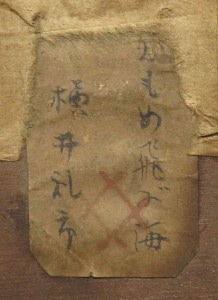 かもめ飛ぶ海
横井礼市